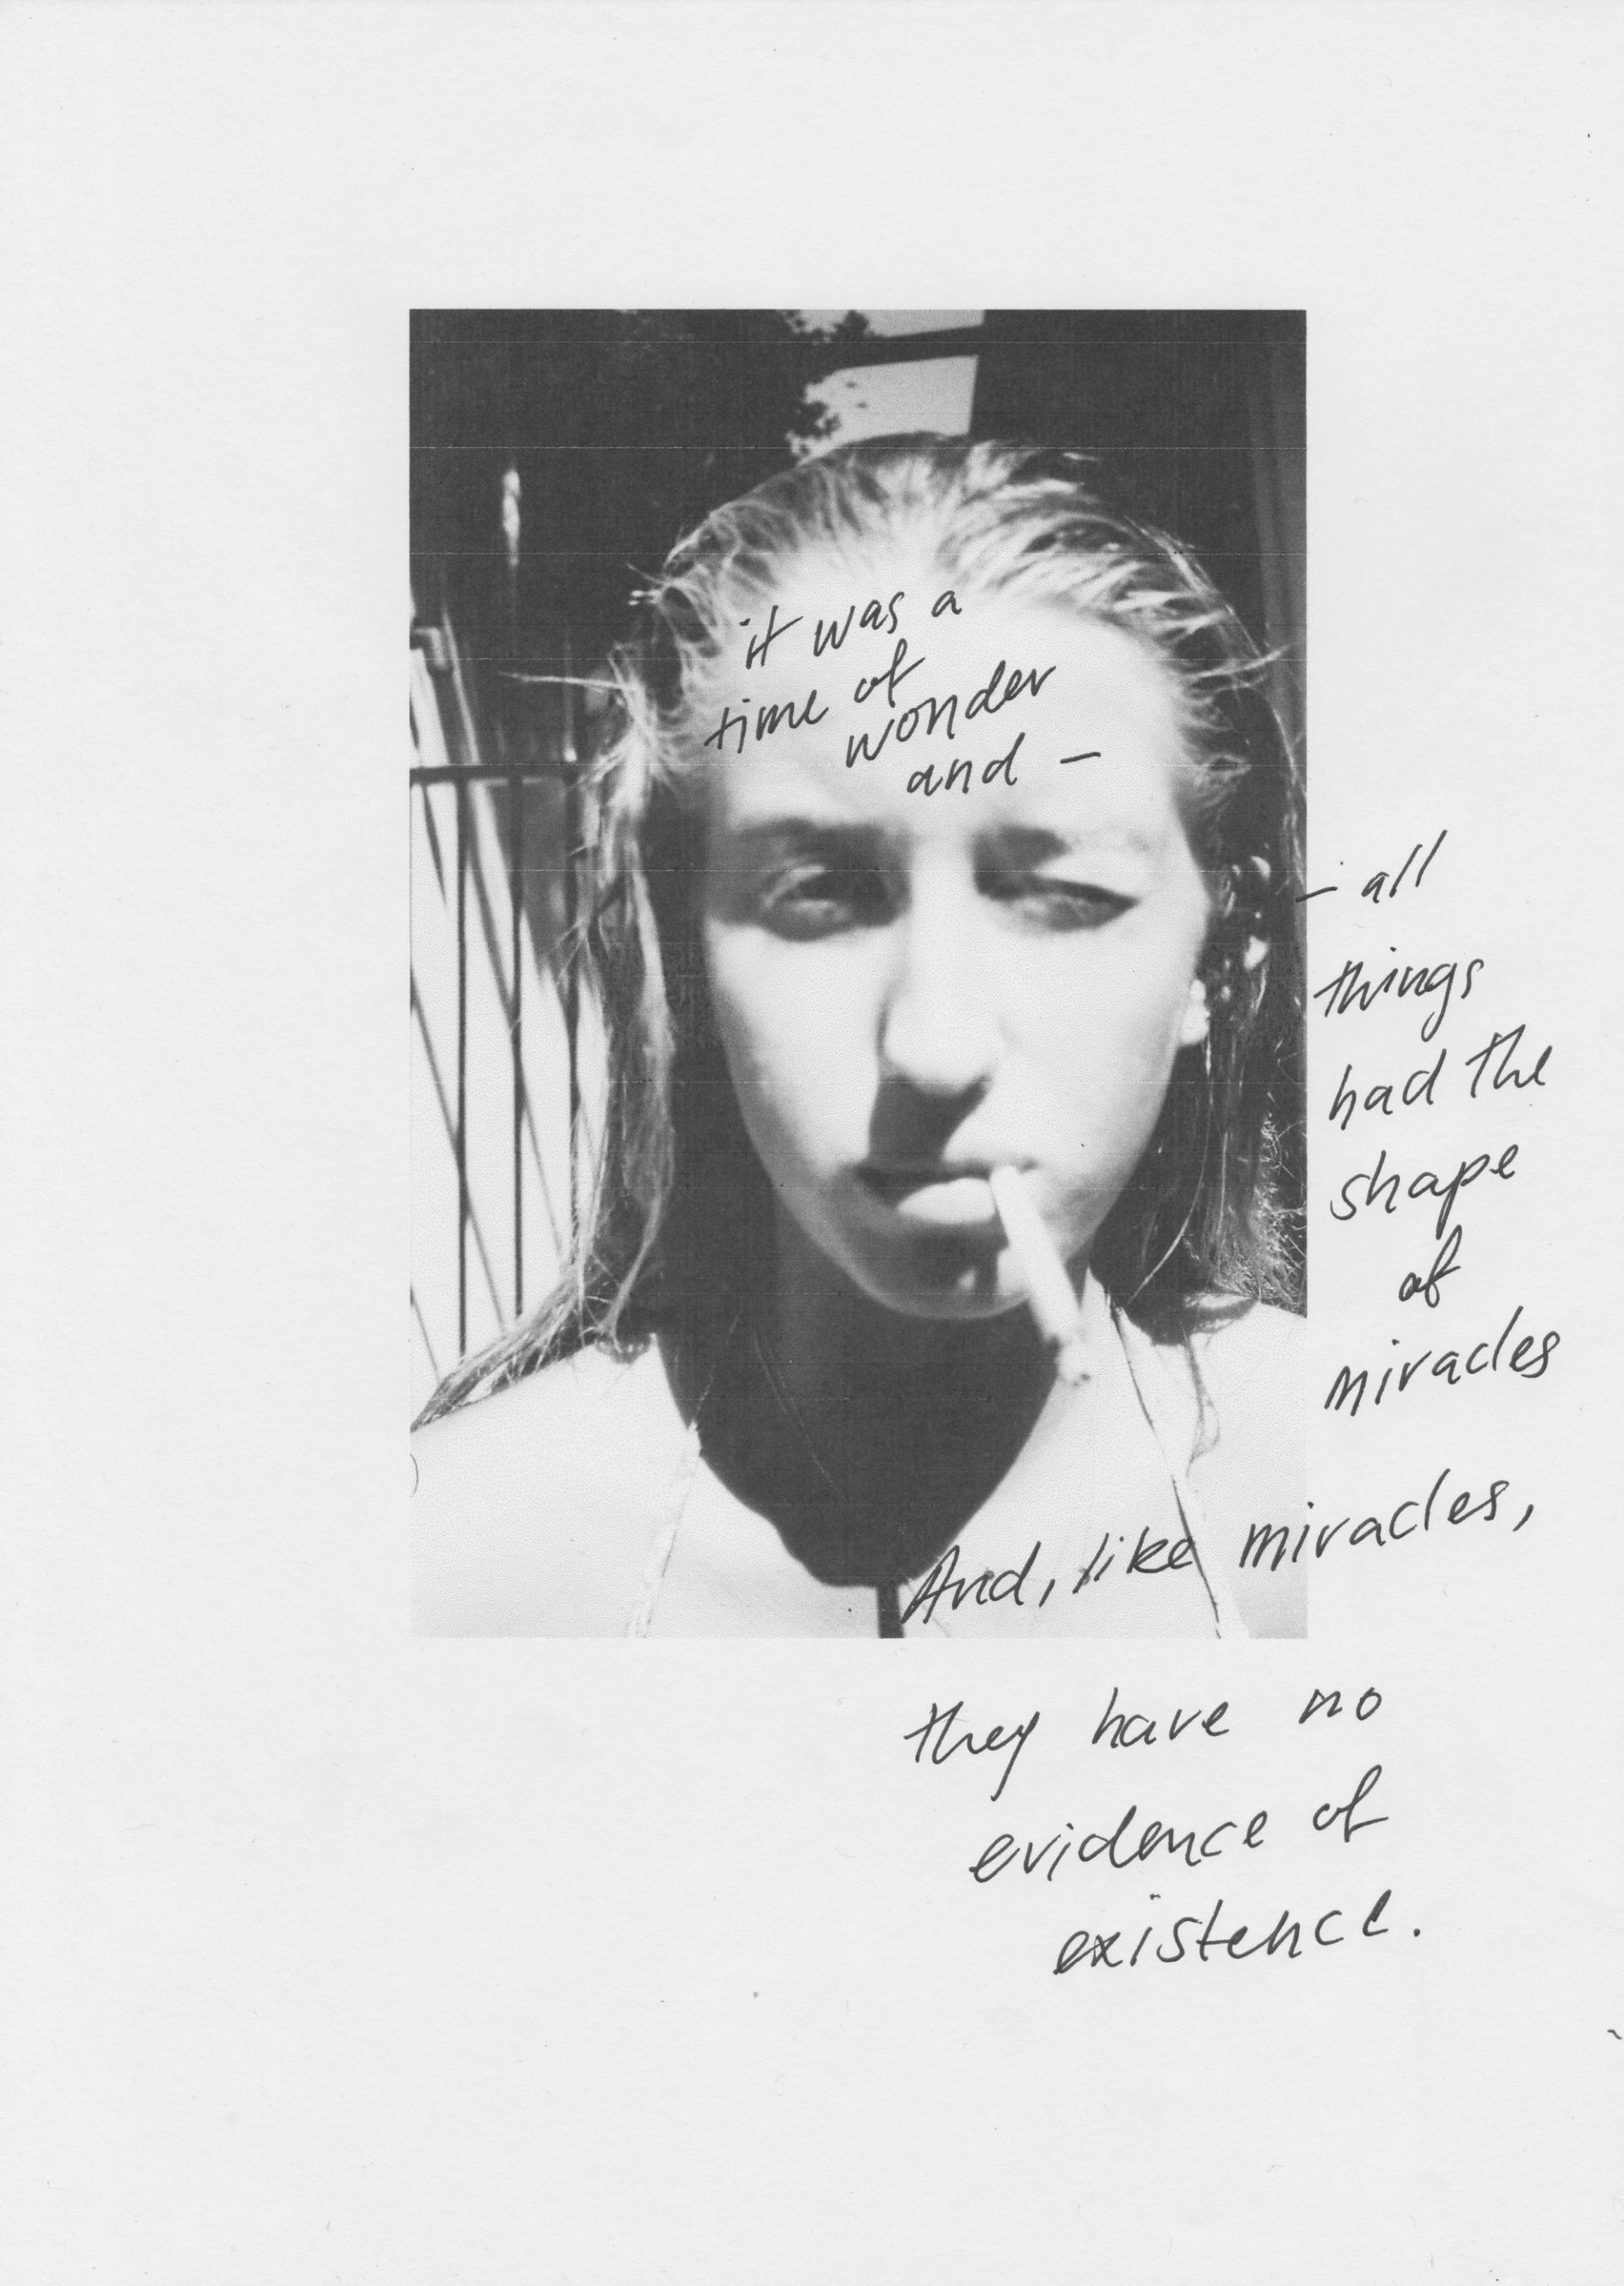 it was a
time of
wonder
and –
– all
things
had the
shape
of
miracles
And, like miracles,
they have no
evidence of
existence.